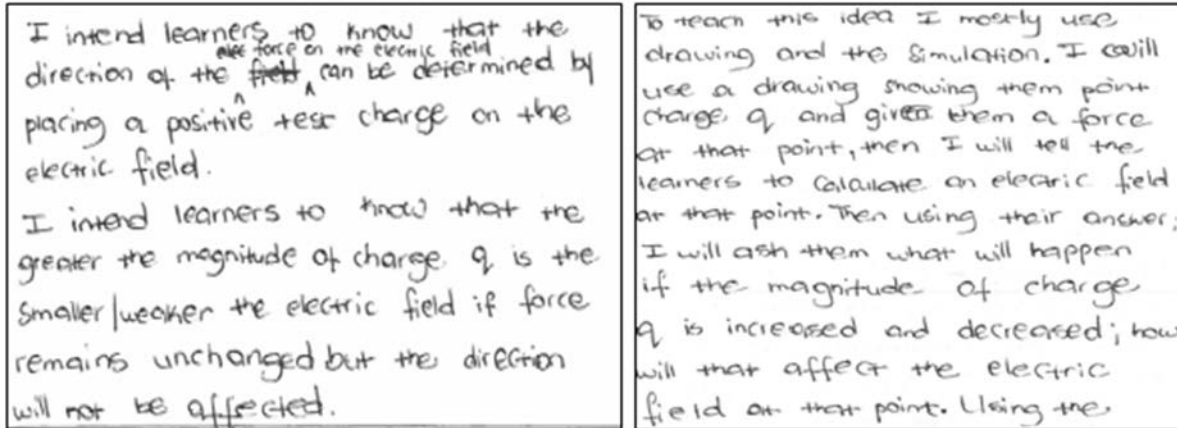 I intend learners to know that the
force on the electric field
direction of the can be determined by
placing a positive test charge on the
electric field.
I intend learners to know that the
greater the magnitude of charge q is the
smaller/weaker the electric field if force
remains unchanged but the direction
will not be affected.
To teach this idea I mostly use
drawing and the simulation. I will
use a drawing showing them point
charge q and given them a force
at that point, then I will tell the
learners to calculate an electric field
at that point. Then using their answer;
I will ask them what will happen
if the magnitude of charge
q is increased and decreased; how
will that affect the electric
field at that point. Using the